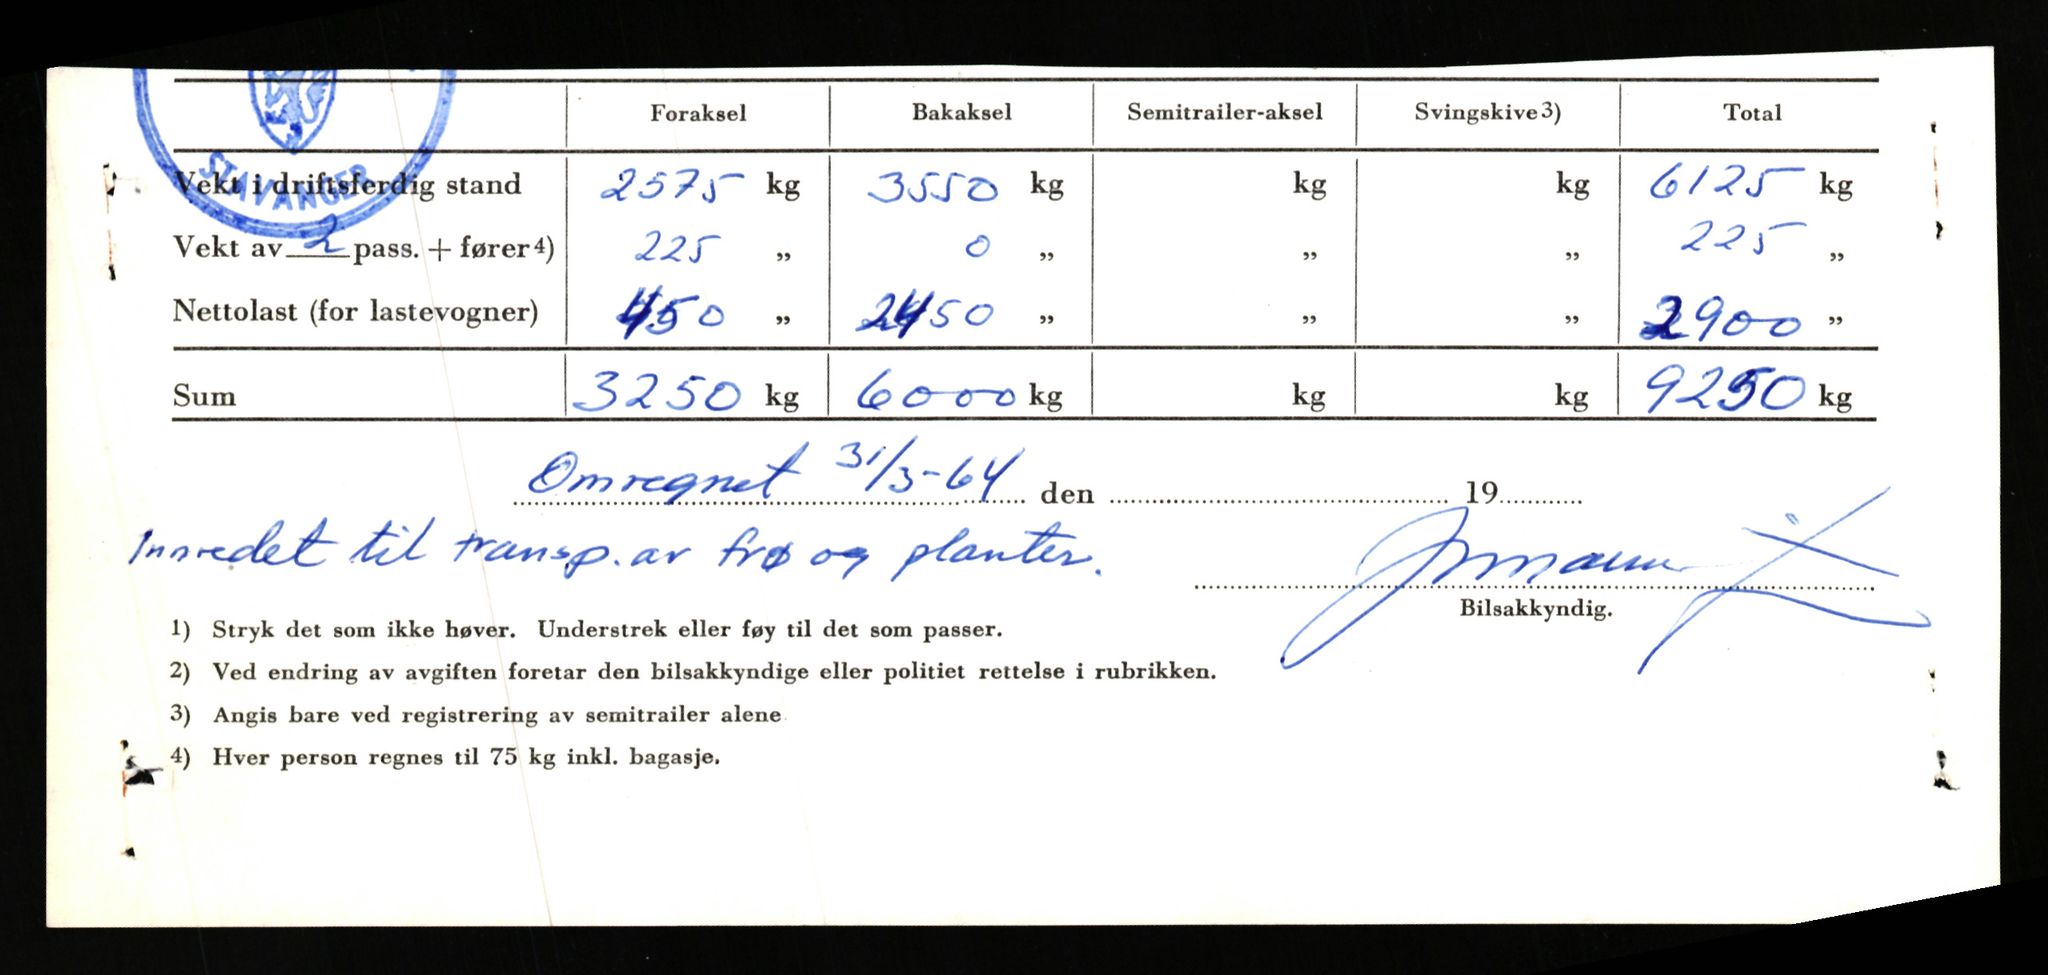 Foraksel Bakaksel Semitrailer-aksel Svingskive3) Total
STAVANGER
Vekt i driftsferdig stand 2575 kg 3550 kg kg kg 6125 kg
Vekt av 2 pass. + fører 4) 225 „ 0 „ „ „ 225 „
Nettolast (for lastevogner) 450 „ 2450 „ „ „ 2900 „
Sum 3250 kg 6000 kg kg kg 9250 kg
Omregnet 31/3-64 den 19
Innredet til transp. av frø og planter.
Bilsakkyndig.
1) Stryk det som ikke høver. Understrek eller føy til det som passer.
2) Ved endring av avgiften foretar den bilsakkyndige eller politiet rettelse i rubrikken.
3) Angis bare ved registrering av semitrailer alene
4) Hver person regnes til 75 kg inkl. bagasje.